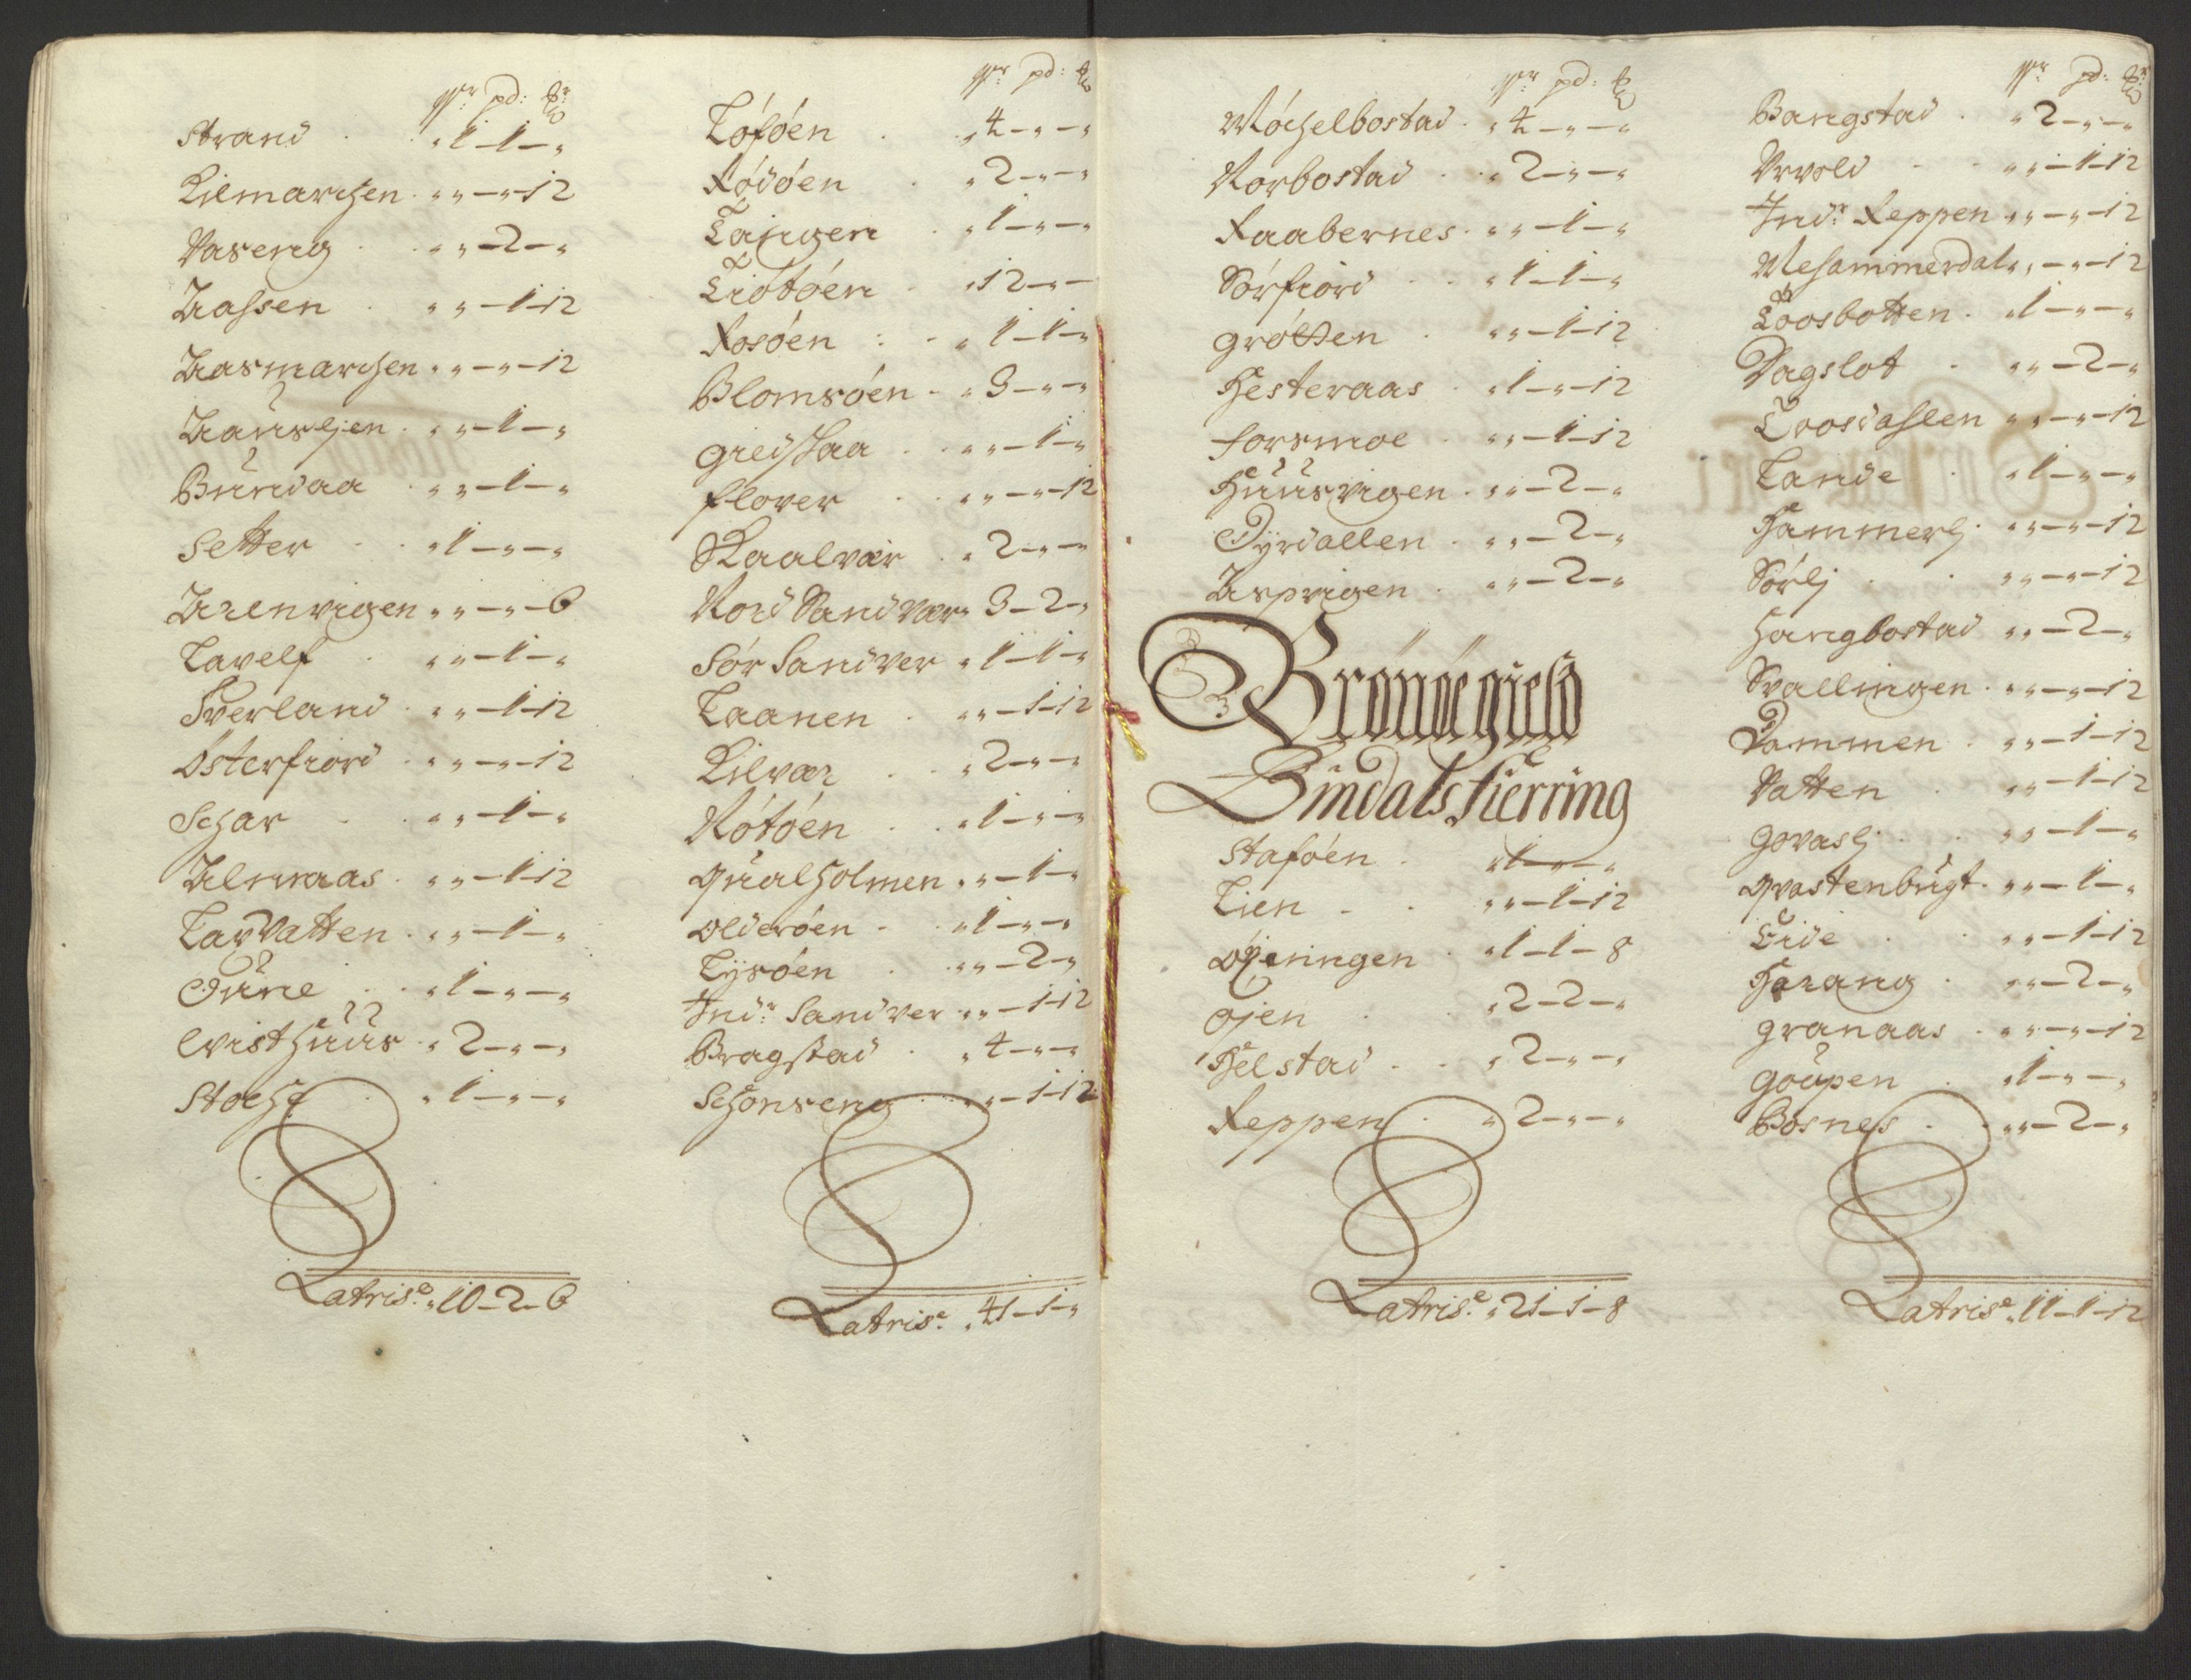 Wr pd: ℔r
Strand . „ 1 - 1 - „
Kilmarchen . „ „ - „ - 12
Vaseng . . „ „ - 2 - „
Aassen . „ „ - 1 - 12
Aasmarchen . „ „ - „ - 12
Aünsljen . „ „ - 1 - „
Bündaa . „ „ - 1 - „
Setter . . „ 1 - „ - „
Arenvigen „ „ - „ - 6
Lavelf . „ „ - 1 - „
Sverland . „ „ - 1 - 12
Österfiord . „ „ - „ - 12
Schar . . „ „ - 1 - „
Almaas . „ „ - 1 - 12
Larvatten . „ „ - 1 - „
Tüne . . „ 1 - „ - „
Qvisthüüs . „ 2 - „ - „
Stoche . „ 1 - „ - „
Latris: „ 10 - 2 - 6
Wr pd: ℔
Löföen . „ 4 - „ - „
Rödöen . „ 2 - „ - „
Tangen . „ 1 - „ - „
Tiötöen . „ 12 - „ -
Rosöen : - „ 1 - 1 - „
Blomsöen - „ 3 - „ - „
Giedstaa . . „ „ - 1 - „
Flover . „ „ - „ - 12
Skaalvær . „ 2 - „ - „
Nord Sandvær „ 3 - 2 - „
Sör Sandver „ 1 - 1 - „
Laanen . „ „ - 1 - 12
Kilvær . . „ 2 - „ - „
Rötöen . . „ 1 - „ - „
Qüalholmen . „ „ - 1 - „
Olderöen - . „ 1 - „ - „
Tysöen . „ „ - 2 - „
Indr Sandver „ „ - 1 - 12
Bragstad . „ 4 - „ - „
Schonseng . „ „ - 1 - 12
Latris: „ 41 - 1 - „
Wr pd: ℔
Möchelbostad . „ 4 - „ - „
Norbostad . . „ 2 - „ - „
Raabernes . „ „ - 1 - „
Sörfiord . . „ 1 - 1 - „
Grötten . „ „ - 1 - 12
Hesteraas . „ 1 - „ - 12
Forsmoe . „ „ - 1 - 12
Hüüsvigen . „ „ - 2 - „
Dyrdallen . „ „ - 2 - „
Aspvigen . „ „ - 2 - „
Brönöegield
Bindals Fierring
Staföen . „ 1 - „ - „
Lien - . „ „ - 1 - 12
Øjeningen . „ 1 - 1 - 8
Øjen . . „ 2 - 2 - „
Helstad . . „ 2 - „ - „
Reppen . „ 2 - „ - „
Latris: „ 21 - 1 - 8
Wr pd: ℔r
Bangstad . „ 2 - „ - „
Vrvold . . „ „ - 1 - 12
Indr Reppen „ „ - „ - 12
Mesammerdal „ „ - „ - 12
Toosbotten . „ 1 - „ - „
Dagslot . „ „ - 2 - „
Toosdahlen „ „ - „ - 12
Lande . „ 1 - „ - „
Hammerlj . „ „ - „ - 12
Sörlj . . „ „ - „ - 12
Hangbostad „ „ - 2 - „
Svallingen . „ „ - „ - 12
Dammen . „ „ - 1 - 12
Vatten . „ „ - 1 - 12
Govaslj . . „ „ - 1 - „
Qvastenbügt . „ „ - 1 - „
Eide . . „ „ - 1 - 12
Harang . „ „ - 2 - „
Granaas . „ „ - „ - 12
Goüpen . „ 1 - „ - „
Bosnes . . „ „ - 2 - „
Latris: „ 11 - 1 - 12